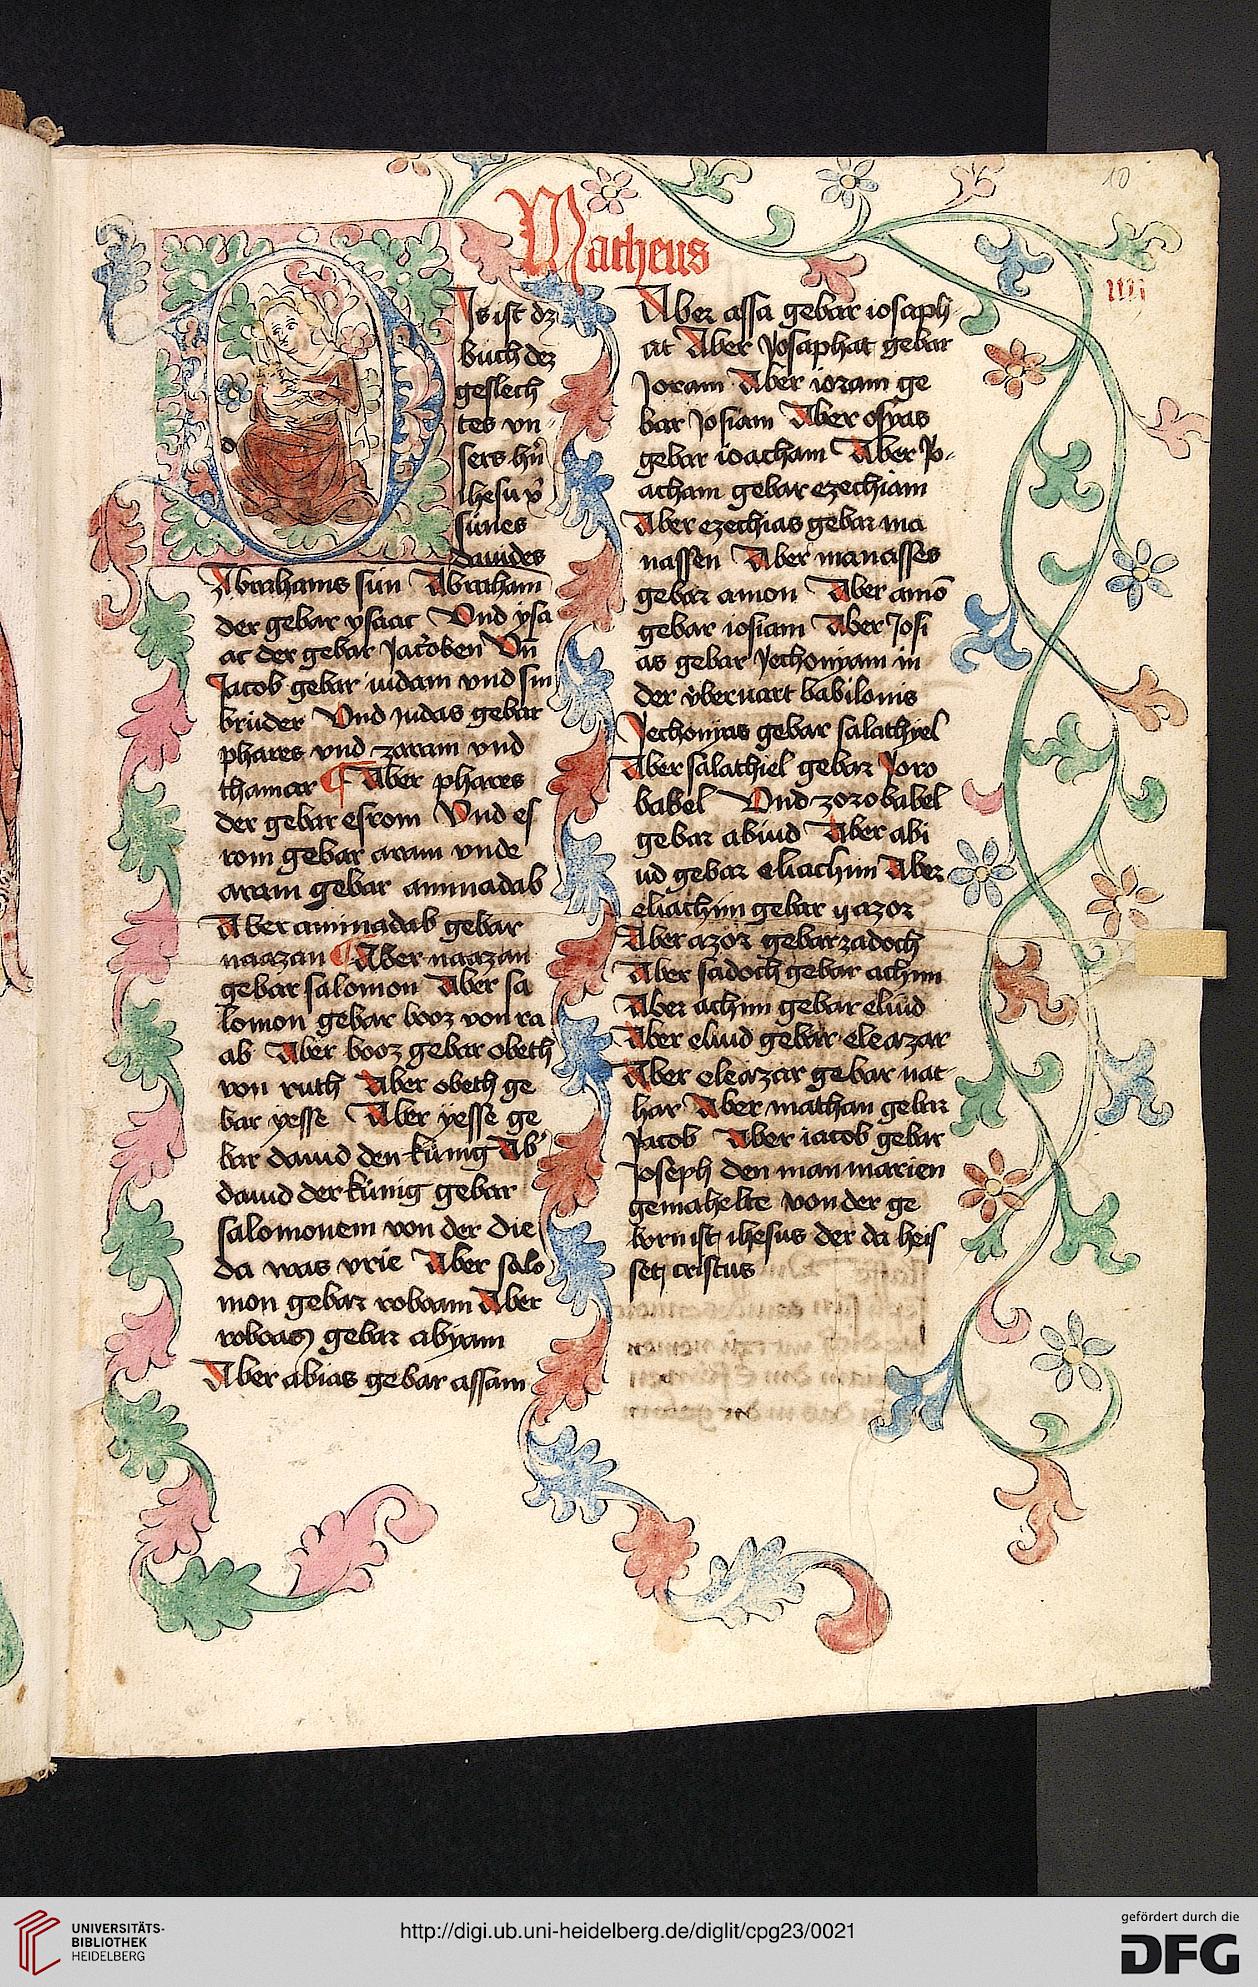 10
Matheus
IIII
Is ist dz
buch dez
geslech
tes vn-
sers hn̄
ihesu x̄
sünes
dauides
Abrahams sun Abraham
der gebar ysaac Vnd ysa
ac der gebar Jacoben Vn̄
Jacob gebar iudam vnd sin
brüder Vnd judas gebar
phares vnd zaram vnd
thamar ¶ Aber phares
der gebar esrom Vnd es
rom gebar aram vnde
aram gebar aminadab
Aber aminadab gebar
naazan ¶ Aber naazan
gebar salomon Aber sa
lomon gebar booz von ra
ab Aber booz gebar obeth
von ruth Aber obeth ge
bar yesse Aber yesse ge
bar dauid den künig Ab'
dauid der künig gebar
salomonem von der die
da was vrie Aber salo
mon gebar roboam Aber
roboas gebar abyam
Aber abias gebar assam
Aber assa gebar iosaph-
at Aber Josaphat gebar
Joram Aber ioram ge
bar Josiam Aber osyas
gebar ioacham Aber Jo-
acham gebar ezechiam
Aber ezechias gebar ma
nassen Aber manasses
gebar amon Aber amō
gebar iosiam Aber Josi
as gebar Jechoniam in
der v̈beruart babilonis
Jechonyas gebar salathyel
Aber salathiel gebar Joro
babel Vnd zorobabel
gebar abiud Aber abi
ud gebar eliachim Aber
eliachim gebar yazor
Aber azor gebar zadoch
Aber sadoch gebar achim
Aber achim gebar eliud
Aber eliud gebar eleazar
Aber eleazar gebar nat-
har Aber mathan gebar
Jacob Aber iacob gebar
Joseph den man marien
gemahelte von der ge
born ist ihesus der da heis
setz cristus
UNIVERSITÄTS-
BIBLIOTHEK
HEIDELBERG
http://digi.ub.uni-heidelberg.de/diglit/cpg23/0021
gefördert durch die
DFG